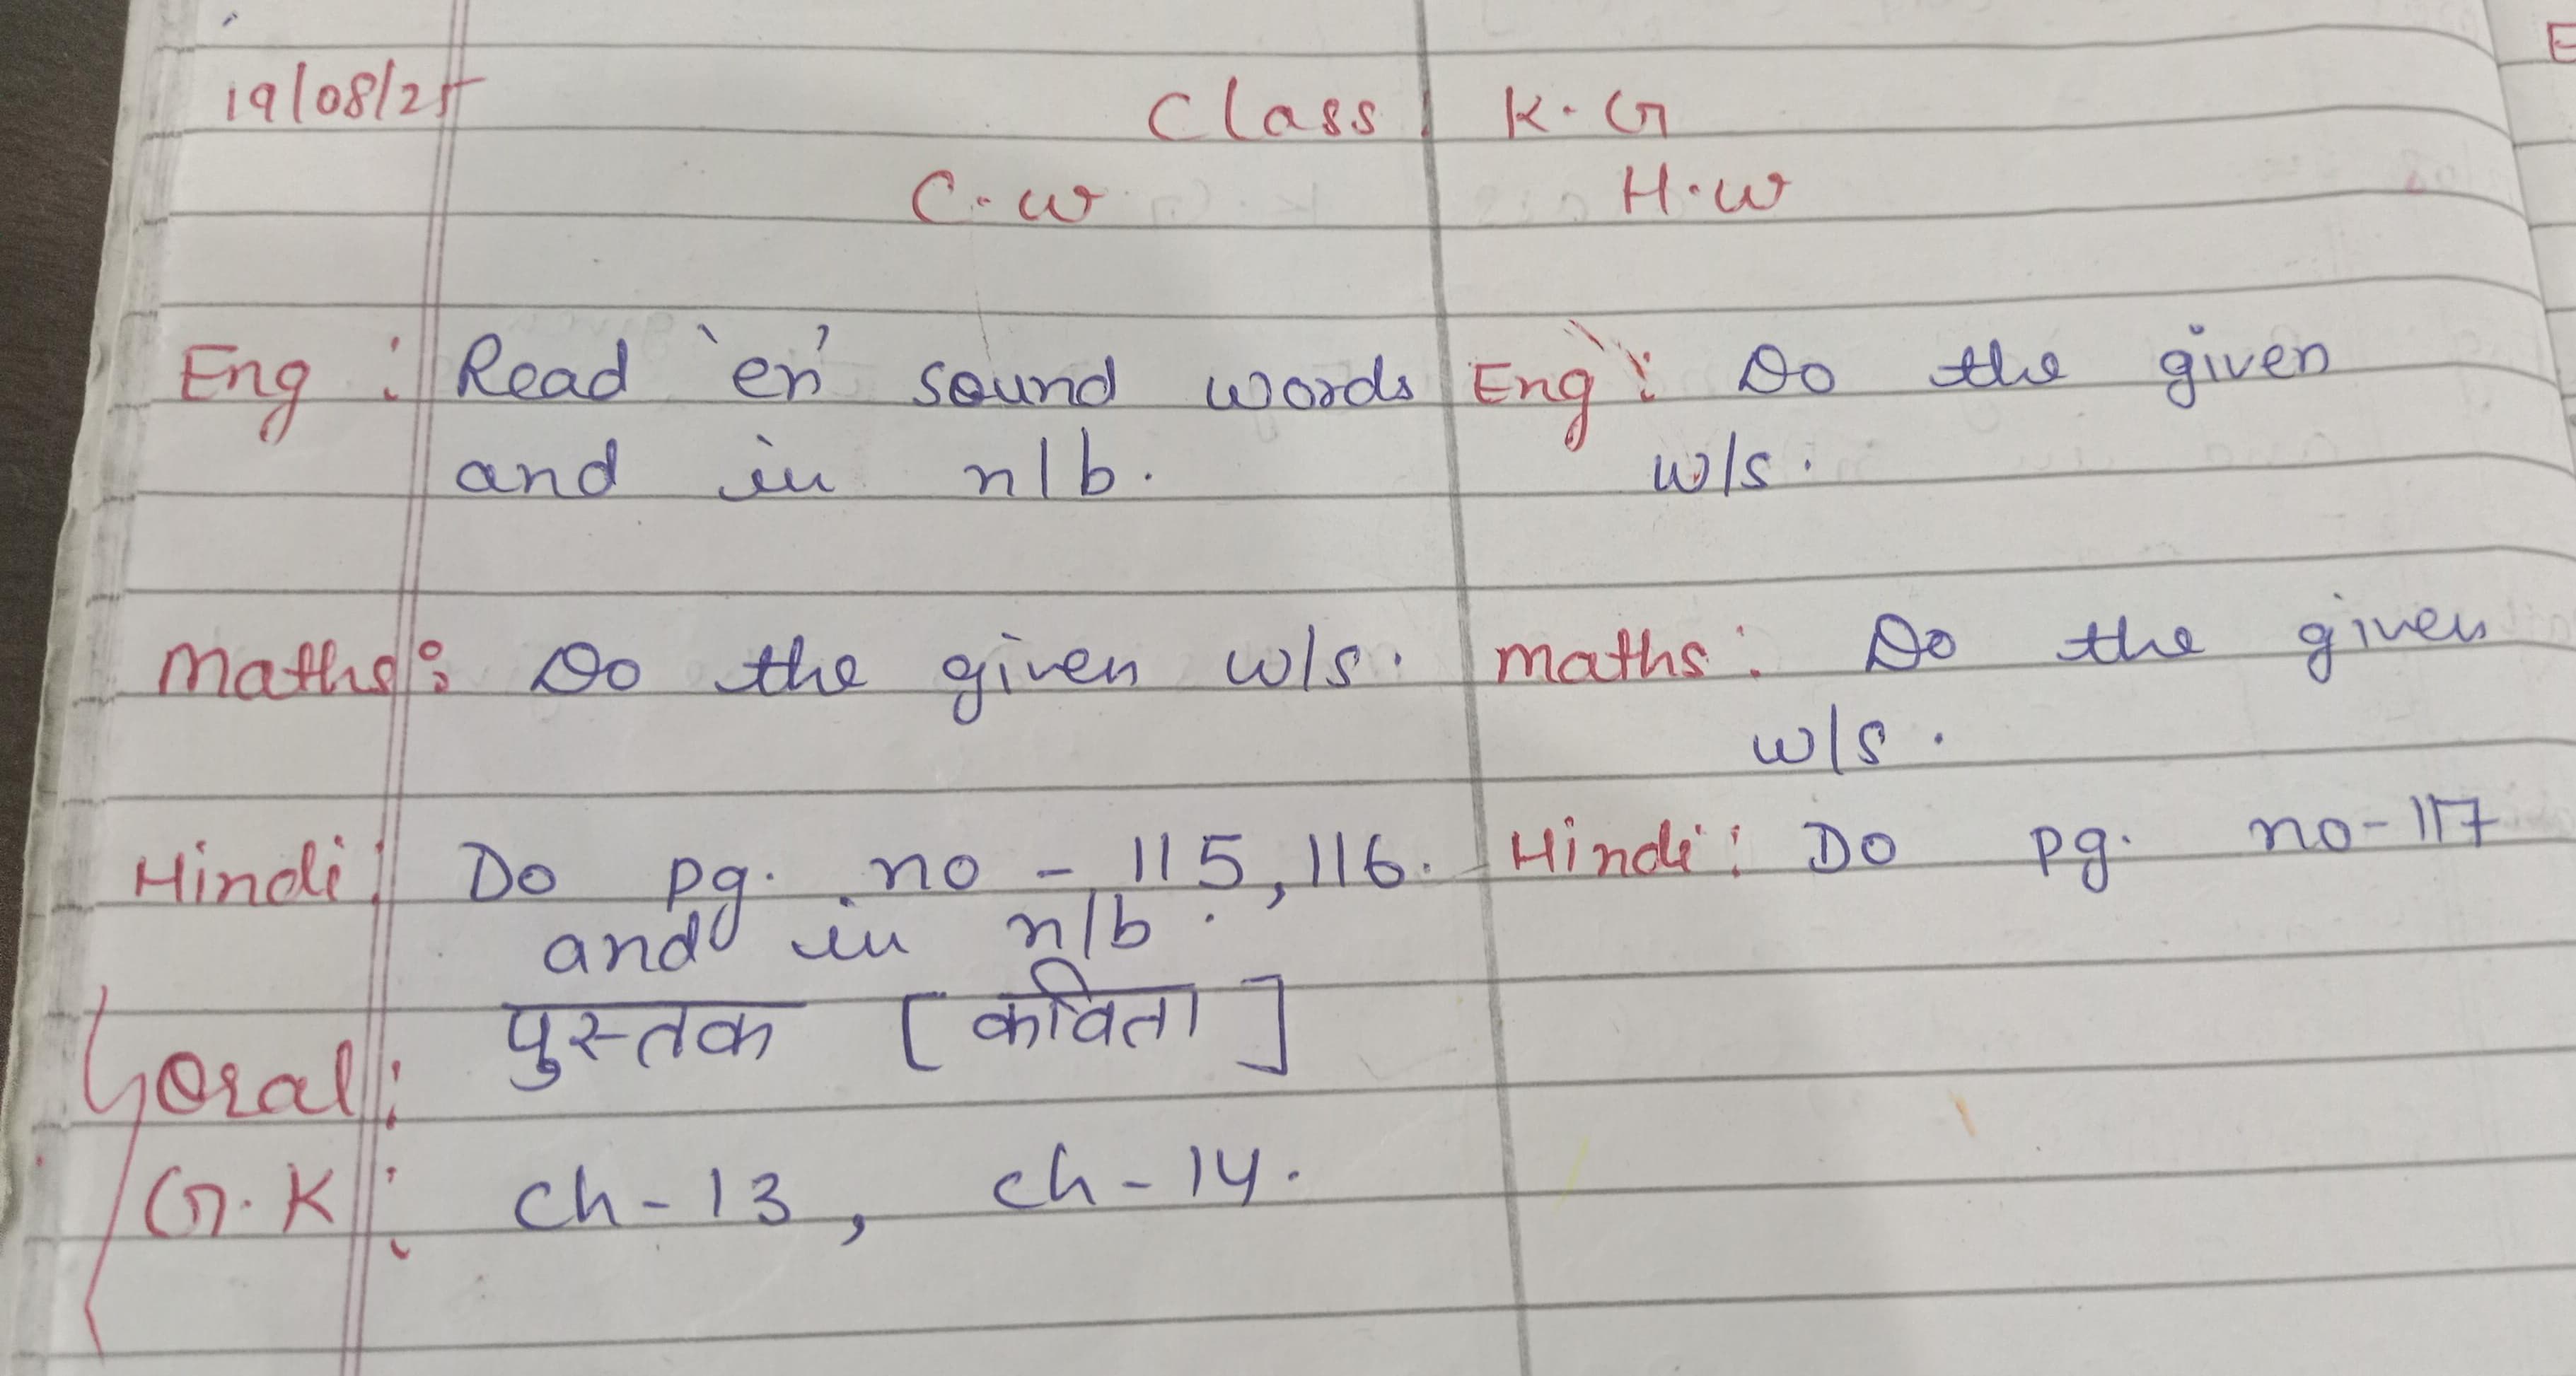 19/08/25
Class K.G
C.W H.W
Eng : Read 'en' sound words
and in n/b.
Eng : Do the given
w/s.
Maths : Do the given w/s.
Maths : Do the given
w/s.
Hindi : Do pg. no - 115, 116.
and in n/b.
Hindi : Do pg. no - 117
Oral : पुस्तक [कविता]
G.K : Ch - 13, Ch - 14.
E